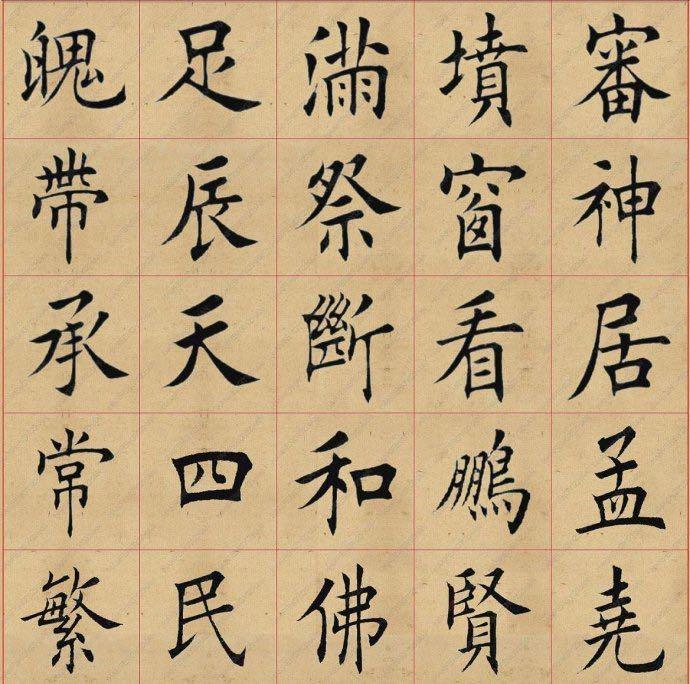 魄足滿墳審
帶辰祭窗神
承天斷看居
常四和鵬孟
繁民佛賢堯